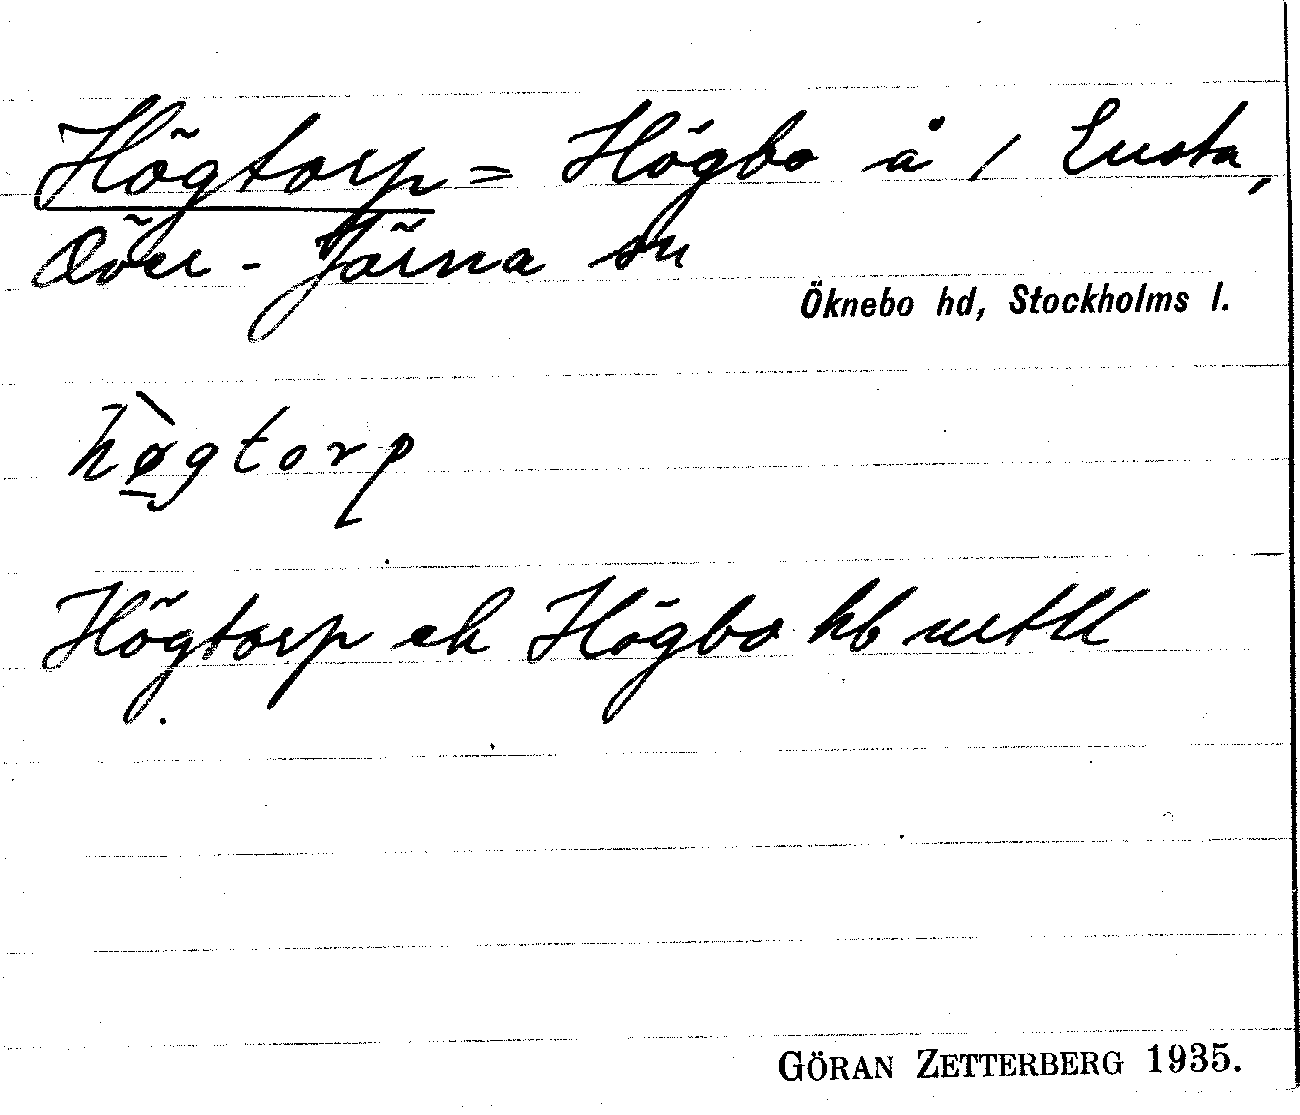 Högtorp = Högbo å 1 Lusta,
Över-Järna sn
Öknebo hd, Stockholms l.
hø̀gtorp
Högtorp ek Högbo hb
GÖRAN ZETTERBERG 1935.